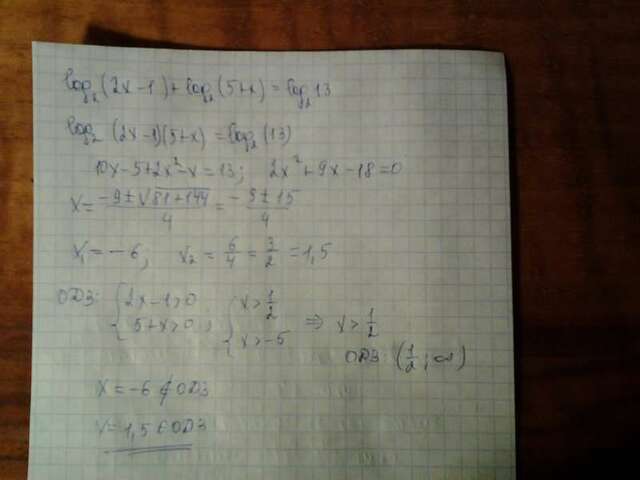 log₂(2x-1)+log₂(5+x)=log₂13
log₂(2x-1)(5+x)=log₂(13)
10x-5+2x²-x=13; 2x²+9x-18=0
x=(-9±√(81+144))/4=(-9±15)/4
x₁=-6; x₂=6/4=3/2=1,5
ОДЗ: {2x-1>0 5+x>0; {x>1/2 x>-5 ⇒ x>1/2
ОДЗ: (1/2;∞)
x=-6∉ОДЗ
x=1,5∈ОДЗ